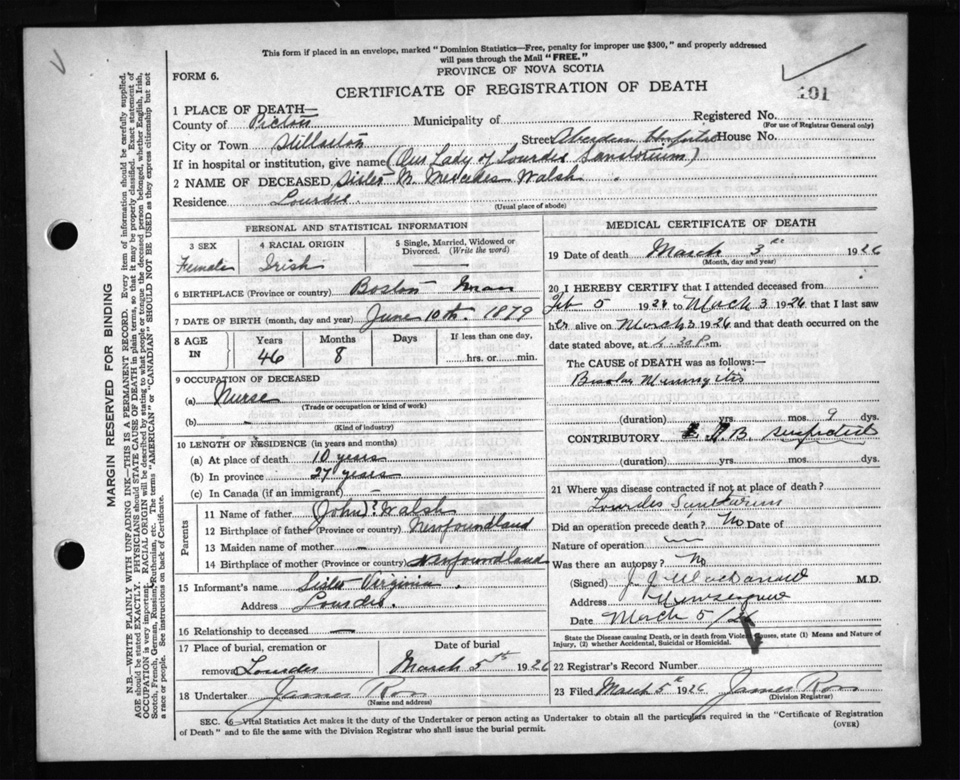 This form if placed in an envelope, marked "Dominion Statistics—Free, penalty for improper use $300," and properly addressed
will pass through the Mail "FREE."
FORM 6.
PROVINCE OF NOVA SCOTIA
CERTIFICATE OF REGISTRATION OF DEATH
101
1 PLACE OF DEATH—
County of Pictou Municipality of Registered No.
(For use of Registrar General only)
City or Town Stellarton Street Aberdeen Hospital House No.
If in hospital or institution, give name (Our Lady of Lourdes Sanatorium)
2 NAME OF DECEASED Sister M. Mercedes Walsh
Residence Lourdes
(Usual place of abode)
PERSONAL AND STATISTICAL INFORMATION
3 SEX 4 RACIAL ORIGIN 5 Single, Married, Widowed or Divorced. (Write the word)
Female Irish —
6 BIRTHPLACE (Province or country) Boston Mass
7 DATE OF BIRTH (month, day and year) June 10th. 1879
8 AGE IN Years Months Days If less than one day,
46 8 hrs. or min.
9 OCCUPATION OF DECEASED
(a) Nurse
(Trade or occupation or kind of work)
(b) -
(Kind of industry)
10 LENGTH OF RESIDENCE (in years and months)
(a) At place of death 10 years
(b) In province 27 years
(c) In Canada (if an immigrant) -
Parents
11 Name of father (John)? Walsh
12 Birthplace of father (Province or country) Newfoundland
13 Maiden name of mother -
14 Birthplace of mother (Province or country) Newfoundland
15 Informant's name Sister Virginia.
Address Lourdes.
16 Relationship to deceased —
17 Place of burial, cremation or removal Lourdes Date of burial March 5th 1926
18 Undertaker James Ross
(Name and address)
MEDICAL CERTIFICATE OF DEATH
19 Date of death March 3rd 1926
(Month, day and year)
20 I HEREBY CERTIFY that I attended deceased from
Feb 5 1926 to Mach 3 1926 that I last saw
her alive on March 3 1926 and that death occurred on
date stated above, at .30 P.m.
The CAUSE of DEATH was as follows:—
Basilar Meningitis
(duration) yrs. mos. 9 dys.
CONTRIBUTORY T.B. suspected
(duration) yrs. mos. dys.
21 Where was disease contracted if not at place of death?
Lourdes Sanitorium
Did an operation precede death? No Date of
Nature of operation —
Was there an autopsy? No
(Signed) J. J. MacDonald M.D.
Address New Glasgow
Date Mach 5/26
State the Disease causing Death, or in death from Violent Causes, state (1) Means and Nature of
Injury, (2) whether Accidental, Suicidal or Homicidal.
22 Registrar's Record Number
23 Filed March 5th 1926 James Ross
(Division Registrar)
SEC. 46—Vital Statistics Act makes it the duty of the Undertaker or person acting as Undertaker to obtain all the particulars required in the "Certificate of Registration
of Death" and to file the same with the Division Registrar who shall issue the burial permit.
(OVER)
MARGIN RESERVED FOR BINDING
N.B.—WRITE PLAINLY WITH UNFADING INK—THIS IS A PERMANENT RECORD. Every item of information should be carefully supplied.
AGE should be stated EXACTLY. PHYSICIANS should STATE CAUSE OF DEATH in plain terms, so that it may be properly classified. Exact statement of
OCCUPATION is very important. RACIAL ORIGIN will be described by stating to what people or tongue the deceased person belonged, whether English, Irish,
Scotch, French, German, Russian, Ruthenian, etc. The terms "AMERICAN" or "CANADIAN" SHOULD NOT BE USED as they express citizenship but not
a race or people. See instructions on back of Certificate.